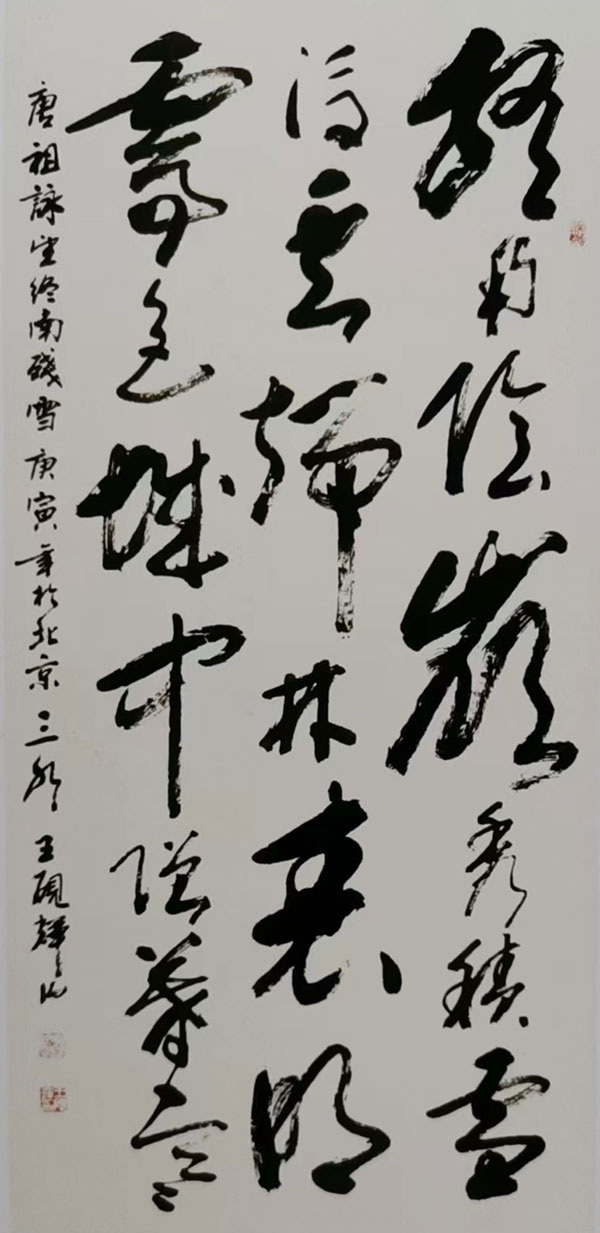 終南陰嶺秀積雪
浮雲端林表明
霽色城中增暮寒
唐祖詠望終南殘雪庚寅年於北京 王硯輝